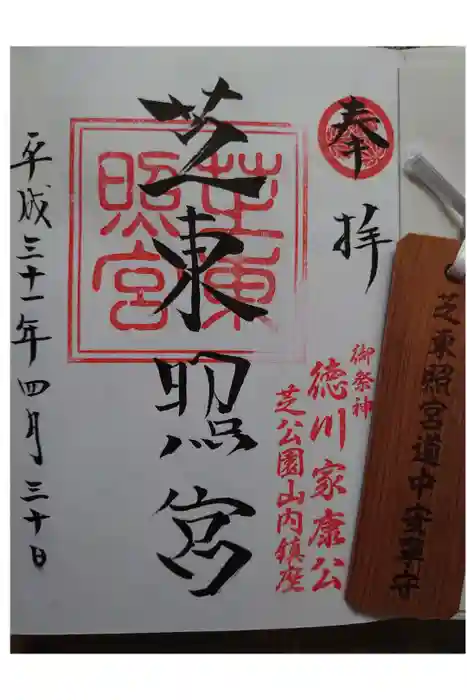 奉
拝
御祭神
徳川家康公
芝公園山内鎮座
芝東照宮
芝東
照宮
平成三十一年四月三十日
芝東照宮道中安寧守